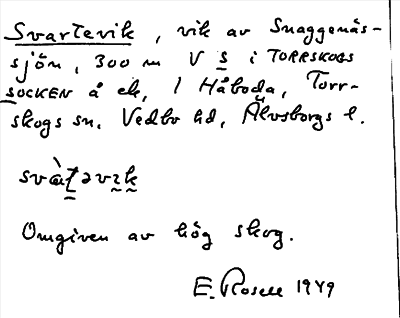 Svartevik, vik av Snaggenäs-
sjön, 300 m V S i TORRSKOGS
SOCKEN å ek, 1 Håboda, Torr-
skogs sn, Vedbo hd, Älvsborgs l.
Omgiven av hög skog.
E. Rosell 1949